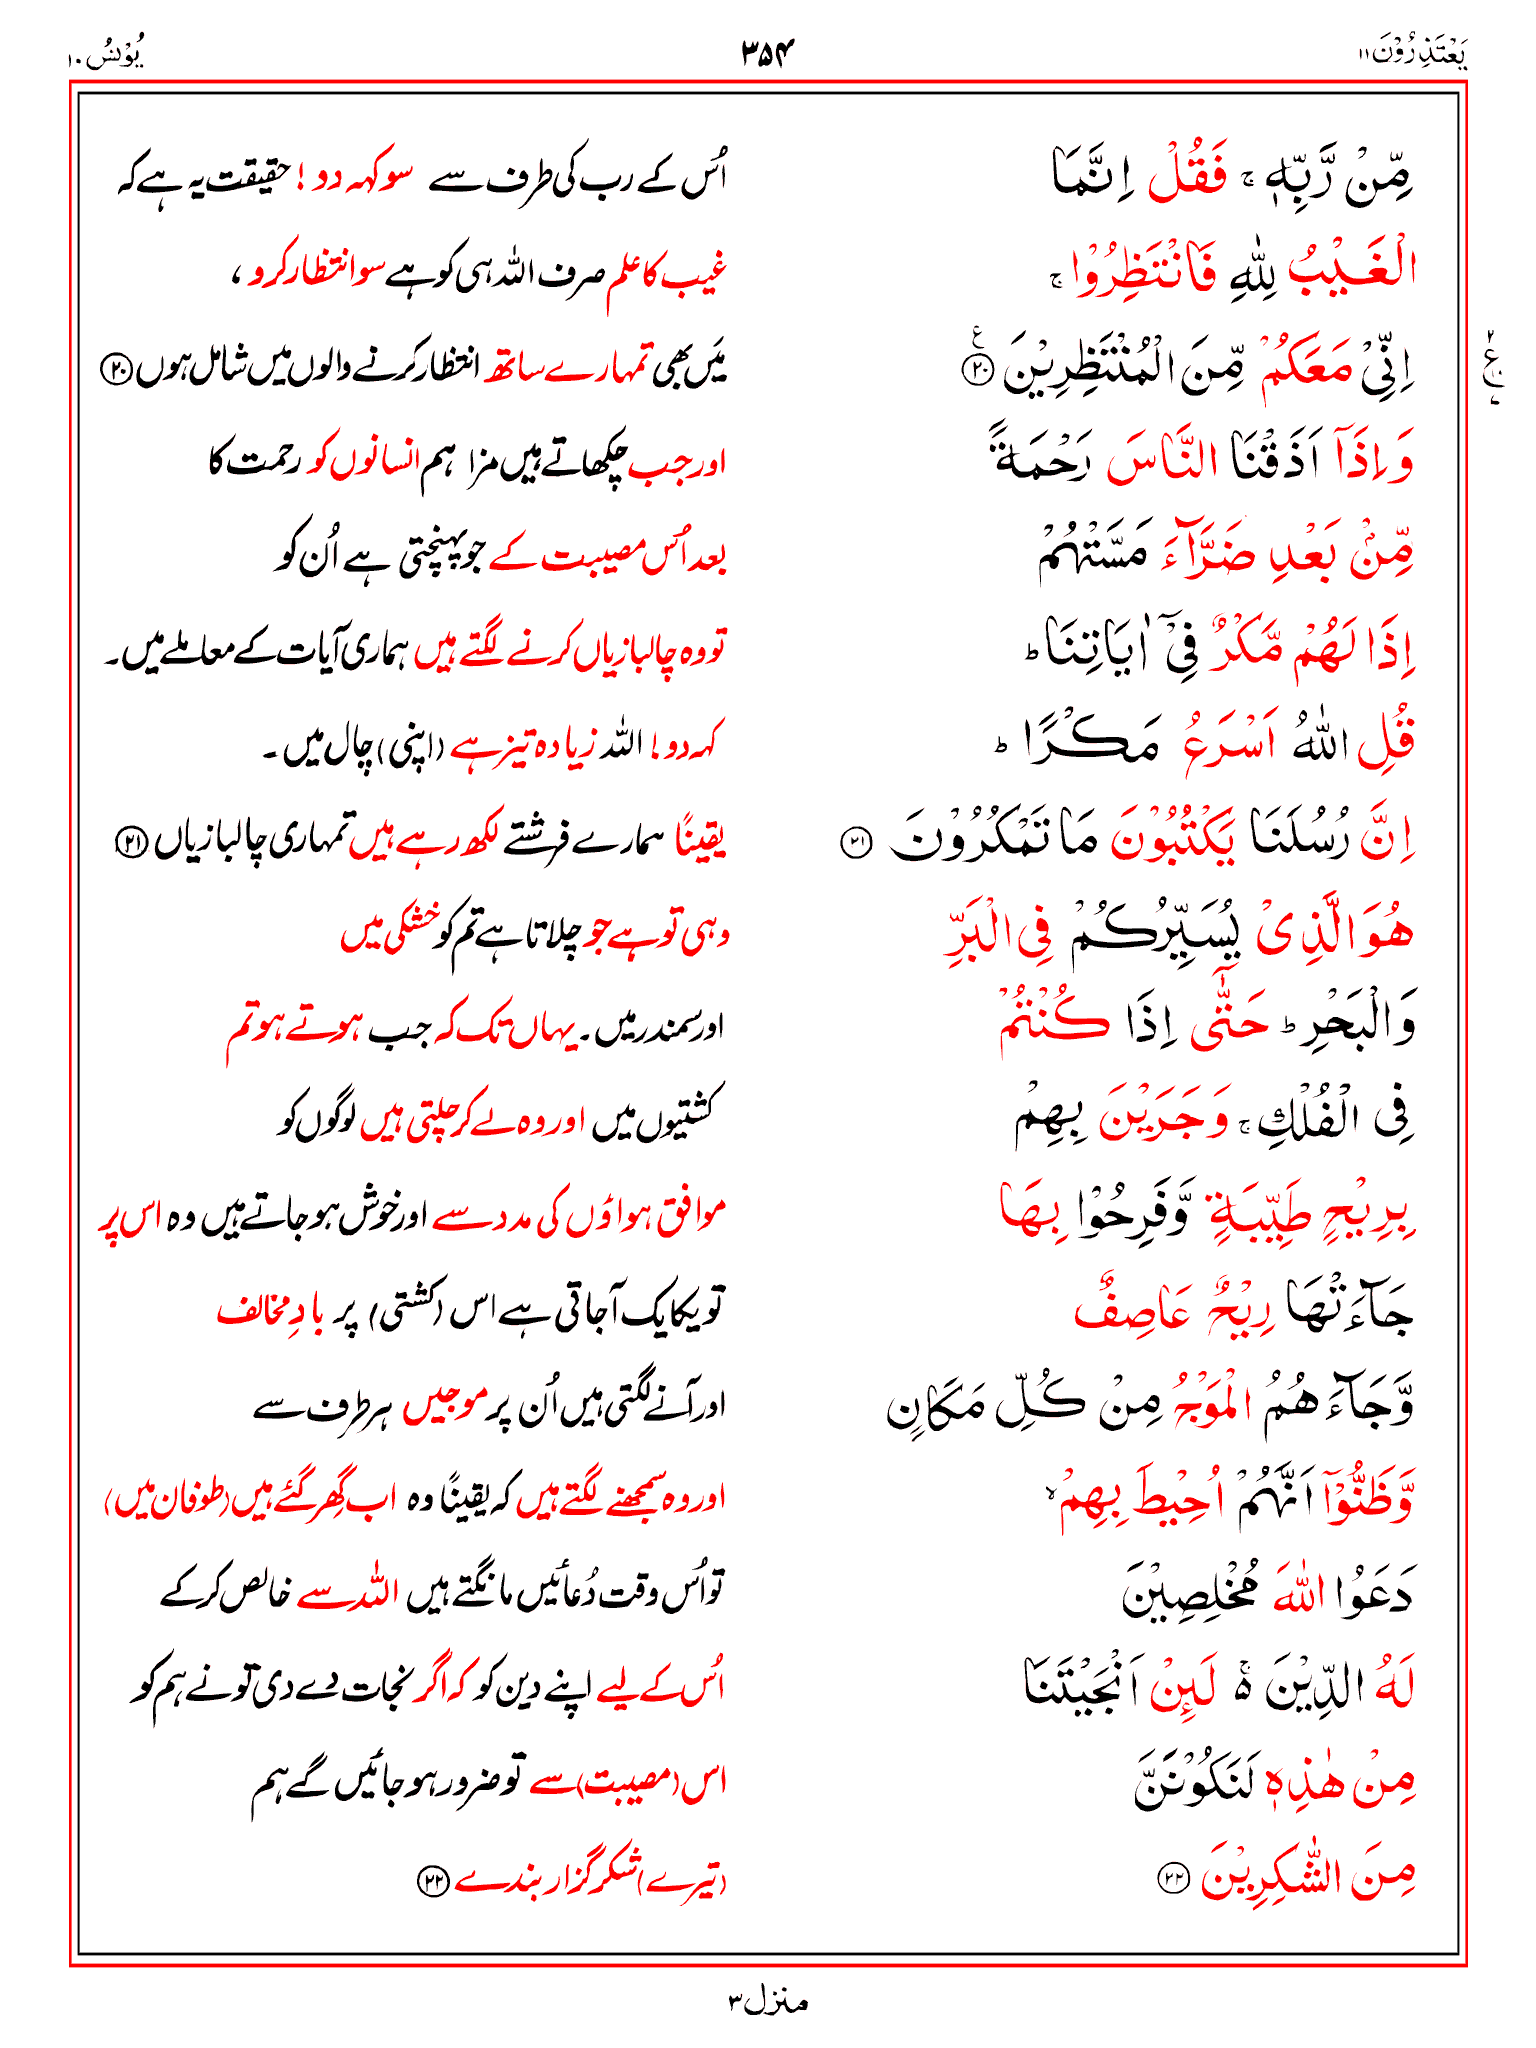 یَعْتَذِرُوْنَ ۱۱ ۳۵۴ یُوْنُسُ ۱۰
مِّنْ رَّبِّهٖ ۚ فَقُلْ اِنَّمَا اُس کے رب کی طرف سے سو کہہ دو! حقیقت یہ ہے کہ
الْغَیْبُ لِلّٰهِ فَانْتَظِرُوْا ۚ غیب کا علم صرف اللہ ہی کو ہے سو انتظار کرو،
اِنِّیْ مَعَكُمْ مِّنَ الْمُنْتَظِرِیْنَ ۠ ﴿۲۰﴾ مَیں بھی تمہارے ساتھ انتظار کرنے والوں میں شامل ہوں ﴿۲۰﴾
وَ اِذَاۤ اَذَقْنَا النَّاسَ رَحْمَةً اور جب چکھاتے ہیں مزا ہم انسانوں کو رحمت کا
مِّنْۢ بَعْدِ ضَرَّآءَ مَسَّتْهُمْ بعد اُس مصیبت کے جو پہنچتی ہے اُن کو
اِذَا لَهُمْ مَّكْرٌ فِیْۤ اٰیَاتِنَا ؕ تو وہ چالبازیاں کرنے لگتے ہیں ہماری آیات کے معاملے میں۔
قُلِ اللّٰهُ اَسْرَعُ مَكْرًا ؕ کہہ دو! اللہ زیادہ تیز ہے (اپنی) چال میں۔
اِنَّ رُسُلَنَا یَكْتُبُوْنَ مَا تَمْكُرُوْنَ ﴿۲۱﴾ یقینًا ہمارے فرشتے لکھ رہے ہیں تمہاری چالبازیاں ﴿۲۱﴾
هُوَ الَّذِیْ یُسَیِّرُكُمْ فِی الْبَرِّ وہی تو ہے جو چلاتا ہے تم کو خشکی میں
وَ الْبَحْرِ ؕ حَتّٰۤی اِذَا كُنْتُمْ اور سمندر میں۔ یہاں تک کہ جب ہوتے ہو تم
فِی الْفُلْكِ ۚ وَ جَرَیْنَ بِهِمْ کشتیوں میں اور وہ لے کر چلتی ہیں لوگوں کو
بِرِیْحٍ طَیِّبَةٍ وَّ فَرِحُوْا بِهَا موافق ہواؤں کی مدد سے اور خوش ہو جاتے ہیں وہ اس پر
جَآءَتْهَا رِیْحٌ عَاصِفٌ تو یکایک آجاتی ہے اس (کشتی) پر بادِ مخالف
وَّ جَآءَهُمُ الْمَوْجُ مِنْ كُلِّ مَكَانٍ اور آنے لگتی ہیں اُن پر موجیں ہر طرف سے
وَّ ظَنُّوْۤا اَنَّهُمْ اُحِیْطَ بِهِمْ ۙ اور وہ سمجھنے لگتے ہیں کہ یقینًا وہ اب گِھر گئے ہیں (طوفان میں)
دَعَوُا اللّٰهَ مُخْلِصِیْنَ تو اُس وقت دُعائیں مانگتے ہیں اللہ سے خالص کرکے
لَهُ الدِّیْنَ ۚ۬ لَىِٕنْ اَنْجَیْتَنَا اُس کے لیے اپنے دین کو کہ اگر نجات دے دی تو نے ہم کو
مِنْ هٰذِهٖ لَنَكُوْنَنَّ اس (مصیبت) سے تو ضرور ہو جائیں گے ہم
مِنَ الشّٰكِرِیْنَ ﴿۲۲﴾ (تیرے) شکر گزار بندے ﴿۲۲﴾
منزل ۳